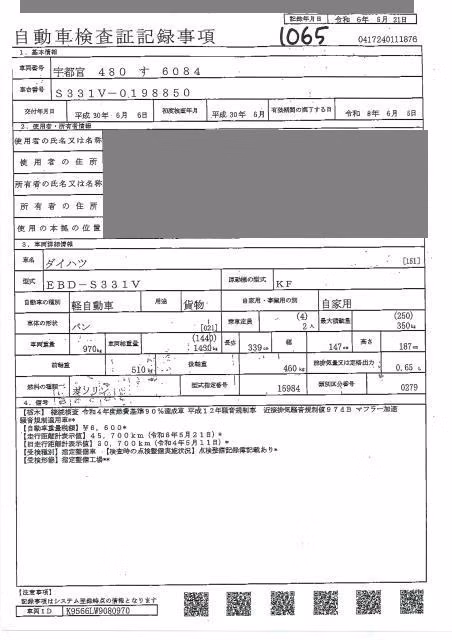 記録年月日 令和 6年 5月 21日
自動車検査証記録事項
1065
0417240111876
1．基本情報
車両番号 宇都宮 480 す 6084
車台番号 S331V-0198850
交付年月日 平成30年 6月 6日 初度検査年月 平成30年 6月 有効期間の満了する日 令和 8年 6月 5日
2．使用者・所有者情報
使用者の氏名又は名称
使用者の住所
所有者の氏名又は名称
所有者の住所
使用の本拠の位置
3．車両詳細情報
車名 ダイハツ [151]
型式 EBD-S331V 原動機の型式 KF
自動車の種別 軽自動車 用途 貨物 自家用・事業用の別 自家用
車体の形状 バン [021] 乗車定員 (4) 2人 最大積載量 (250) 350kg
車両重量 970kg 車両総重量 (1440) 1430kg 長さ 339cm 幅 147cm 高さ 187cm
前軸重 510kg 後軸重 460kg 総排気量又は定格出力 0.65 L
燃料の種類 ガソリン 型式指定番号 15984 類別区分番号 0279
4．備考
【栃木】 継続検査 令和4年度燃費基準90%達成車 平成12年騒音規制車 近接排気騒音規制値97dB マフラー加速
騒音規制適用車**
【自動車重量税額】￥6,600*
【走行距離計表示値】45,700km（令和6年5月21日）*
【旧走行距離計表示値】30,700km（令和4年5月11日）*
【受検種別】指定整備車 【検査時の点検整備実施状況】点検整備記録簿記載あり*
【受検形態】指定整備工場**
【注意事項】
記録事項はシステム登録時点の情報となります
車両ID K9566LW9080970